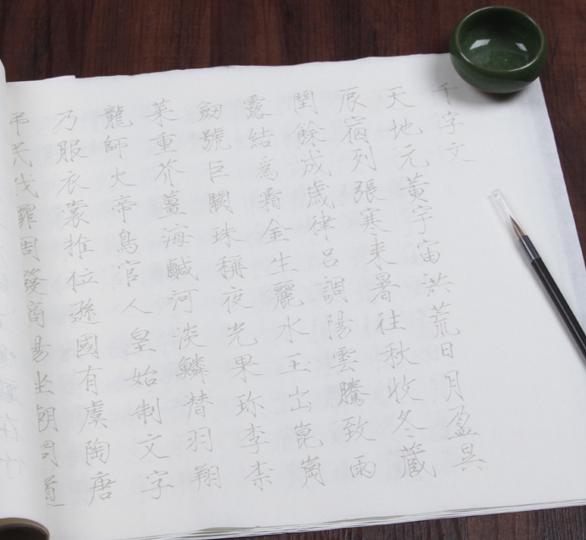 千字文
天地元黃宇宙洪荒日月盈昃
辰宿列張寒来暑往秋收冬藏
閏餘成歲律呂調陽雲騰致雨
露結為霜金生麗水玉出崑崗
劒號巨闕珠稱夜光果珍李柰
菜重芥薑海鹹河淡鱗潜羽翔
龍師火帝鳥官人皇始制文字
乃服衣裳推位遜國有虞陶唐
弔民伐罪周發商湯坐朝問道